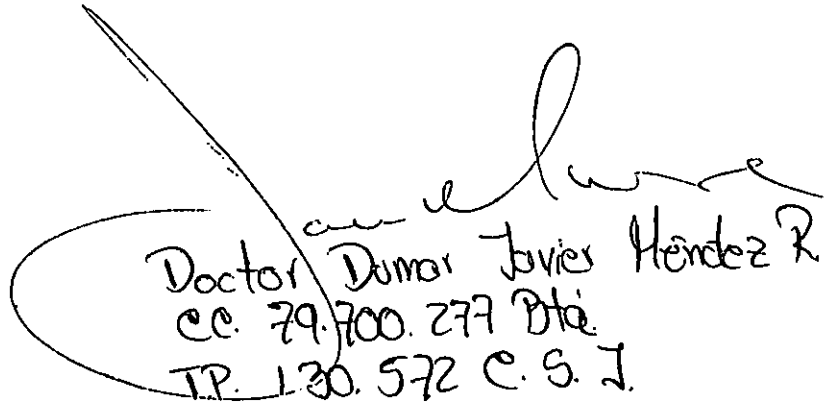 Doctor Dumar Javier Méndez R
CC. 79.700.277 Bta.
T.P. 130.572 C. S. J.